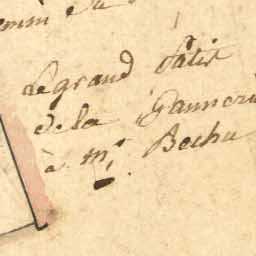 Le grand Patis
de la Gannerie
à Mr. Bechu